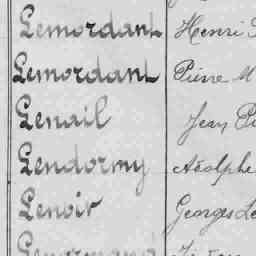 Lemordant Henri
Lemordant Pierre M
Lenail Jean Pi
Lendormy Adolphe
Lenoir Georges Le
Lenormand